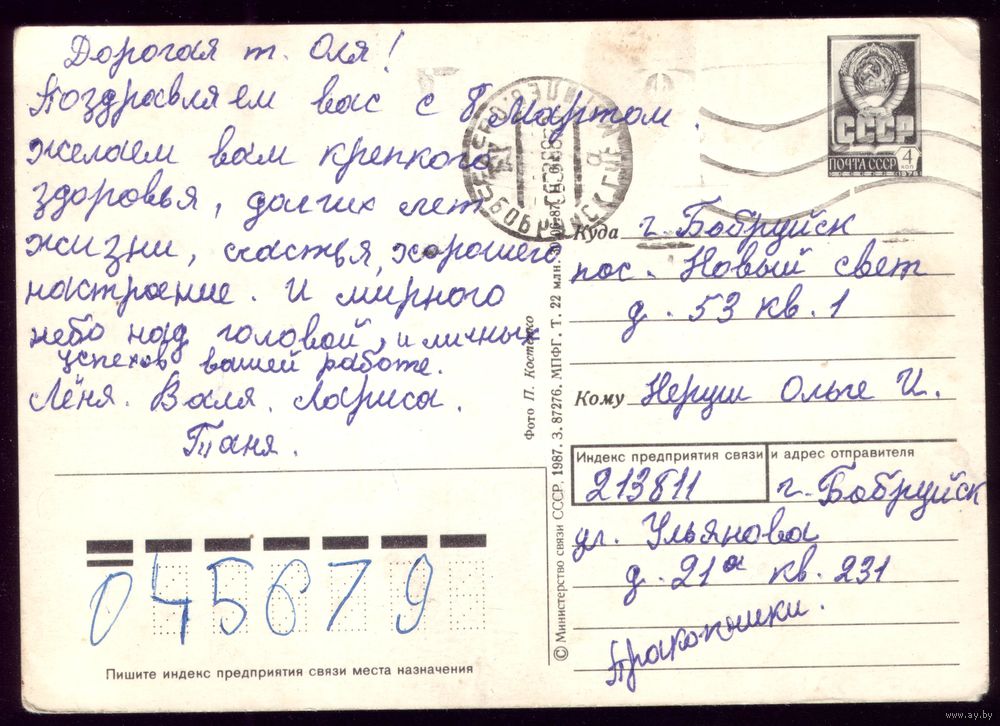 Дорогая т. Оля!
Поздравляем вас с 8 Мартом.
желаем вам крепкого
здоровья, долгих лет
жизни, счастья, хорошего
настроение. И мирного
небо над головой, и личных
успехов вашей работе.
Лёня. Валя. Лариса.
Таня.
СССР
ПОЧТА СССР 4 коп
Куда г. Бобруйск
пос. Новый свет
д. 53 кв. 1
Кому Неруш Ольге И.
Индекс предприятия связи и адрес отправителя
213811 г. Бобруйск
ул. Ульянова
д. 21а кв. 231
Пракопчики.
Фото П. Костенко
© Министерство связи СССР, 1987. З. 87276. МПФГ. Т. 22 млн.
045679
Пишите индекс предприятия связи места назначения
www.ay.by